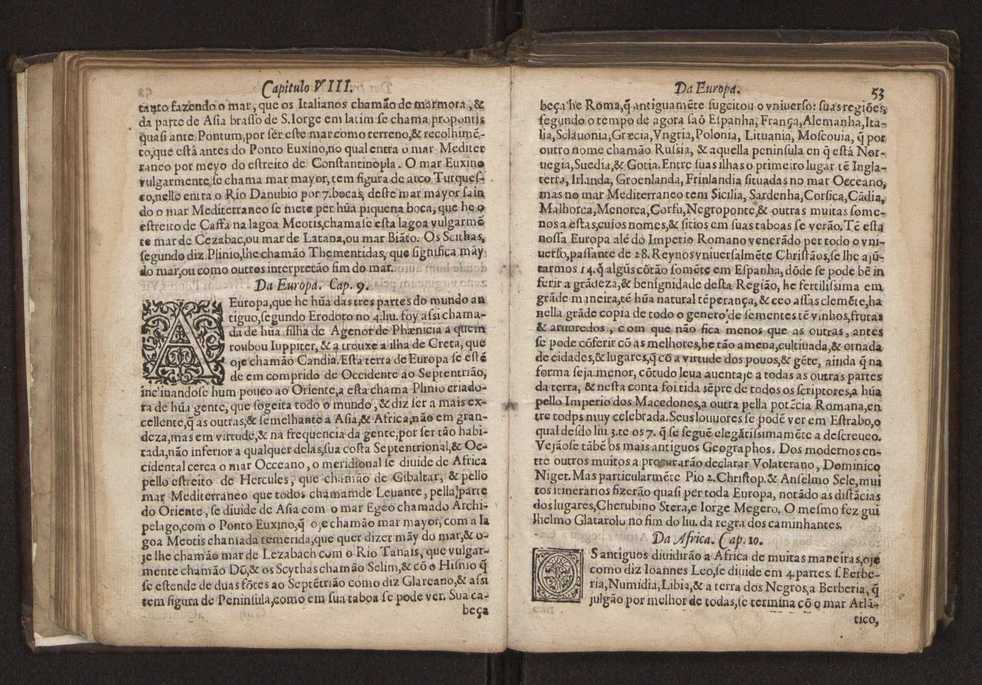 Capitulo VIII.
tanto fazendo o mar, que os Italianos chamão de marmora, &
da parte de Asia brasso de S.Iorge em latim se chama propontis
quasi ante Pontum, por ser este mar como terreno, & recolhimẽ-
to, que està antes do Ponto Euxino, no qual entra o mar Mediter
raneo por meyo do estreito de Constantinopla. O mar Euxino
vulgarmente se chama mar mayor, tem figura de arco Turques-
co, nelle entra o Rio Danubio por 7. bocas, deste mar mayor sain
do o mar Mediterraneo se mete per hũa piquena boca, que he o
estreito de Caffa na lagoa Meotis, chamase esta lagoa vulgarmẽ
te mar de Cezabac, ou mar de Latana, ou mar Biãto. Os Scithas,
segundo diz Plinio, lhe chamão Thementidas, que significa mãy
do mar, ou como outros interpretão fim do mar.
Da Europa. Cap. 9.
A Europa, que he hũa das tres partes do mundo an
tiguo, segundo Erodoto no 4.liu. foy assi chama-
da de hũa filha de Agenor de Phænicia a quem
roubou Iuppiter, & a trouxe a ilha de Creta, que
oje chamão Candia. Esta terra de Europa se estẽ
de em comprido de Occidente ao Septentrião,
inclinandose hum pouco ao Oriente, a esta chama Plinio criado-
ra de hũa gente, que sogeita todo o mundo, & diz ser a mais ex-
cellente, q̃ as outras, & semelhante a Asia, & Africa, não em gran-
deza, mas em virtude, & na frequencia da gente, por ser tão habi-
tada, não inferior a qualquer delas, sua costa Septentrional, & Oc-
cidental cerca o mar Occeano, o meridional se diuide de Africa
pello estreito de Hercules, que chamão de Gibaltar, & pello
mar Mediterraneo que todos chamam de Leuante, pella parte
do Oriente, se diuide de Asia com o mar Egeo chamado Archi-
pelago, com o Ponto Euxino, q̃ oje chamão mar mayor, com a la
goa Meotis chamada temerida, que quer dizer mãy do mar, & o-
je lhe chamão mar de Lezabach com o Rio Tanais, que vulgar-
mente chamão Dõ, & os Scythas chamão Selim, & cõ o Histnio q̃
se estende de duas fõtes ao Septẽtrião como diz Glareano, & assi
tem figura de Peninsula, como em sua taboa se pode ver. Sua ca-
beça
Da Europa. 53
beça he Roma, q̃ antiguamẽte sugeitou o vniuerso: suas regiões,
segundo o tempo de agora saõ Espanha, França, Alemanha, Ita-
lia, Sclauonia, Grecia, Vngria, Polonia, Lituania, Moscouia, q̃ por
outro nome chamão Russia, & aquella peninsula en q̃ està Nor-
uegia, Suedia, & Gotia. Entre suas ilhas o primeiro lugar tẽ Ingla-
terra, Irlanda, Groenlanda, Frinlandia situadas no mar Occeano,
mas no mar Mediterraneo tem Sicilia, Sardenha, Corsica, Cãdia,
Malhorca, Menorca, Corfu, Negroponte, & outras muitas some-
nos a estas, cujos nomes, & sitios em suas taboas se verão. Tẽ esta
nossa Europa alẽ do Imperio Romano venerãdo per todo o vni-
uerso, passante de 28. Reynos vniuersalmẽte Christãos, se lhe ajũ-
tarmos 14. q̃ algũs cõtão somẽte em Espanha, dõde se pode bẽ in
ferir a grãdeza, & benignidade desta Região, he fertilissima em
grãde maneira, tẽ hũa natural tẽperança, & ceo assas clemẽte, ha
nella grãde copia de todo o genero de sementes tẽ vinhos, frutas
& aruoredos, com que não fica menos que as outras, antes
se pode cõferir cõ as melhores, he tão amena, cultiuada, & ornada
de cidades, & lugares, q̃ cõ a virtude dos pouos, & gẽte, ainda q̃ na
forma seja menor, cõtudo leua auentaje a todas as outras partes
da terra, & nesta conta foi tida sẽpre de todos os scriptores, a hũa
pello Imperio dos Macedones, a outra pella potẽcia Romana, en
tre todos muy celebrada. Seus louuores se podẽ ver em Estrabo, o
qual desdo liu 3. te os 7. q̃ se seguẽ elegãtissimamẽte a descreueo.
Vejãose tãbẽ os mais antiguos Geographos. Dos modernos en-
tre outros muitos a procurarão declarar Volaterano, Dominico
Niger. Mas particularmẽte Pio 2. Christop. & Anselmo Sele, mui
tos itinerarios fizerão quasi per toda Europa, notãdo as distãcias
dos lugares, Cherubino Stera, e Iorge Megero. O mesmo fez gui
lhelmo Glatarolo no fim do liu. da regra dos caminhantes.
Da Africa. Cap. 10.
OS antiguos diuidirão a Africa de muitas maneiras, oje
como diz Ioannes Leo, se diuide em 4. partes. s. Berbe-
ria, Numidia, Libia, & a terra dos Negros, a Berberia, q̃
julgão por melhor de todas, se termina cõ o mar Atlã-
tico,